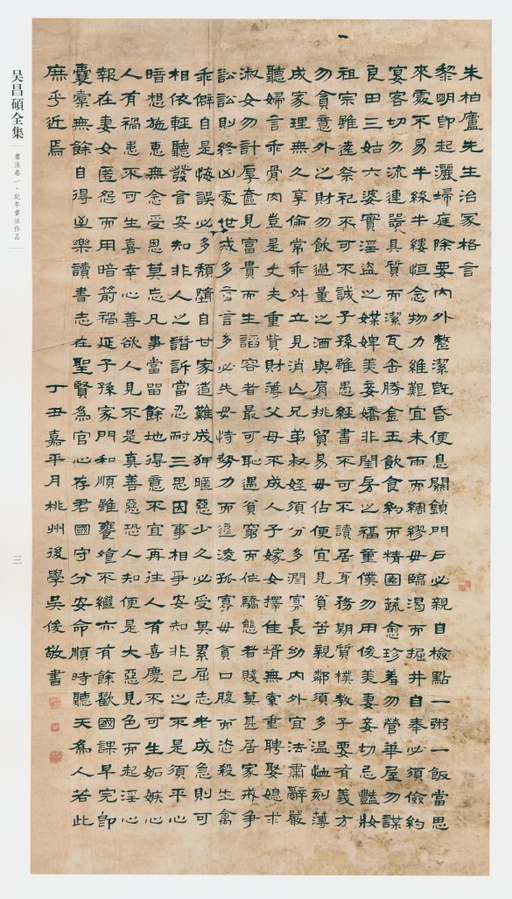 朱柏廬先生治家格言
黎明即起灑埽庭除要內外整潔既昏便息關鎖門戶必親自檢點一粥一飯當思
來處不易半絲半縷恒念物力維艱宜未雨而綢繆毋臨渴而掘井自奉必須儉約
宴客切勿流連器具質而潔瓦缶勝金玉飲食約而精園蔬愈珍羞勿營華屋勿謀
良田三姑六婆實淫盜之媒婢美妾嬌非閨房之福童僕勿用俊美妻妾切忌豔妝
祖宗雖遠祭祀不可不誠子孫雖愚經書不可不讀居身務期質樸教子要有義方
勿貪意外之財勿飲過量之酒與肩挑貿易毋佔便宜見貧苦親鄰須多溫恤刻薄
成家理無久享倫常乖舛立見消亡兄弟叔姪須分多潤寡長幼內外宜法肅辭嚴
聽婦言乖骨肉豈是丈夫重貲財薄父母不成人子嫁女擇佳壻無索重聘娶媳求
淑女勿計厚奩見富貴而生諂容者最可恥遇貧窮而作驕態者賤莫甚居家戒爭
訟訟則終凶處世戒多言言多必失毋恃勢力而逼凌孤寡毋貪口腹而恣殺生禽
乖僻自是悔誤必多頹隳自甘家道難成狎暱惡少久必受其累屈志老成急則可
相依輕聽發言安知非人之譖訴當忍耐三思因事相爭安知非己之不是須平心
暗想施惠無念受恩莫忘凡事當留餘地得意不宜再往人有喜慶不可生妬嫉心
人有禍患不可生喜幸心善欲人見不是真善惡恐人知便是大惡見色而起淫心
報在妻女匿怨而用暗箭禍延子孫家門和順雖饔飧不繼亦有餘歡國課早完即
囊橐無餘自得至樂讀書志在聖賢為官心存君國守分安命順時聽天為人若此
庶乎近焉
丁丑嘉平月桃州後學吳俊敬書
吴昌碩全集
書法卷一·紀年書法作品
三